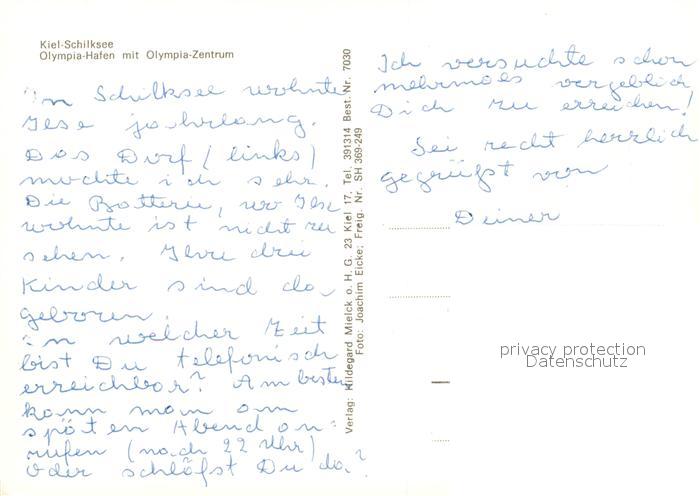 Kiel-Schilksee
Olympia-Hafen mit Olympia-Zentrum
In Schilksee wohnte
Ilse jahrlang.
Das Dorf (links)
mochte ich sehr.
Die Batterie, wo Ilse
wohnte ist nicht zu
sehen. Ihre drei
Kinder sind da
geboren.
In welcher Zeit
bist Du telefonisch
erreichbar? Am besten
kann man am
späten Abend an-
rufen (nach 22 Uhr)
Oder schläfst Du da?
Verlag: Hildegard Mielck o. H. G. 23 Kiel 17, Tel. 391314 Best. Nr. 7030
Foto: Joachim Eicke; Freig. Nr. SH 369-249
Ich versuchte schon
mehrmals vergeblich
Dich zu erreichen!
Sei recht herzlich
gegrüßt von
Deiner
privacy protection
Datenschutz